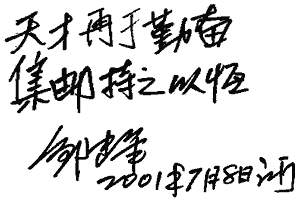 天才再于勤奋
集邮持之以恒
邹建军
2001年7月8日订